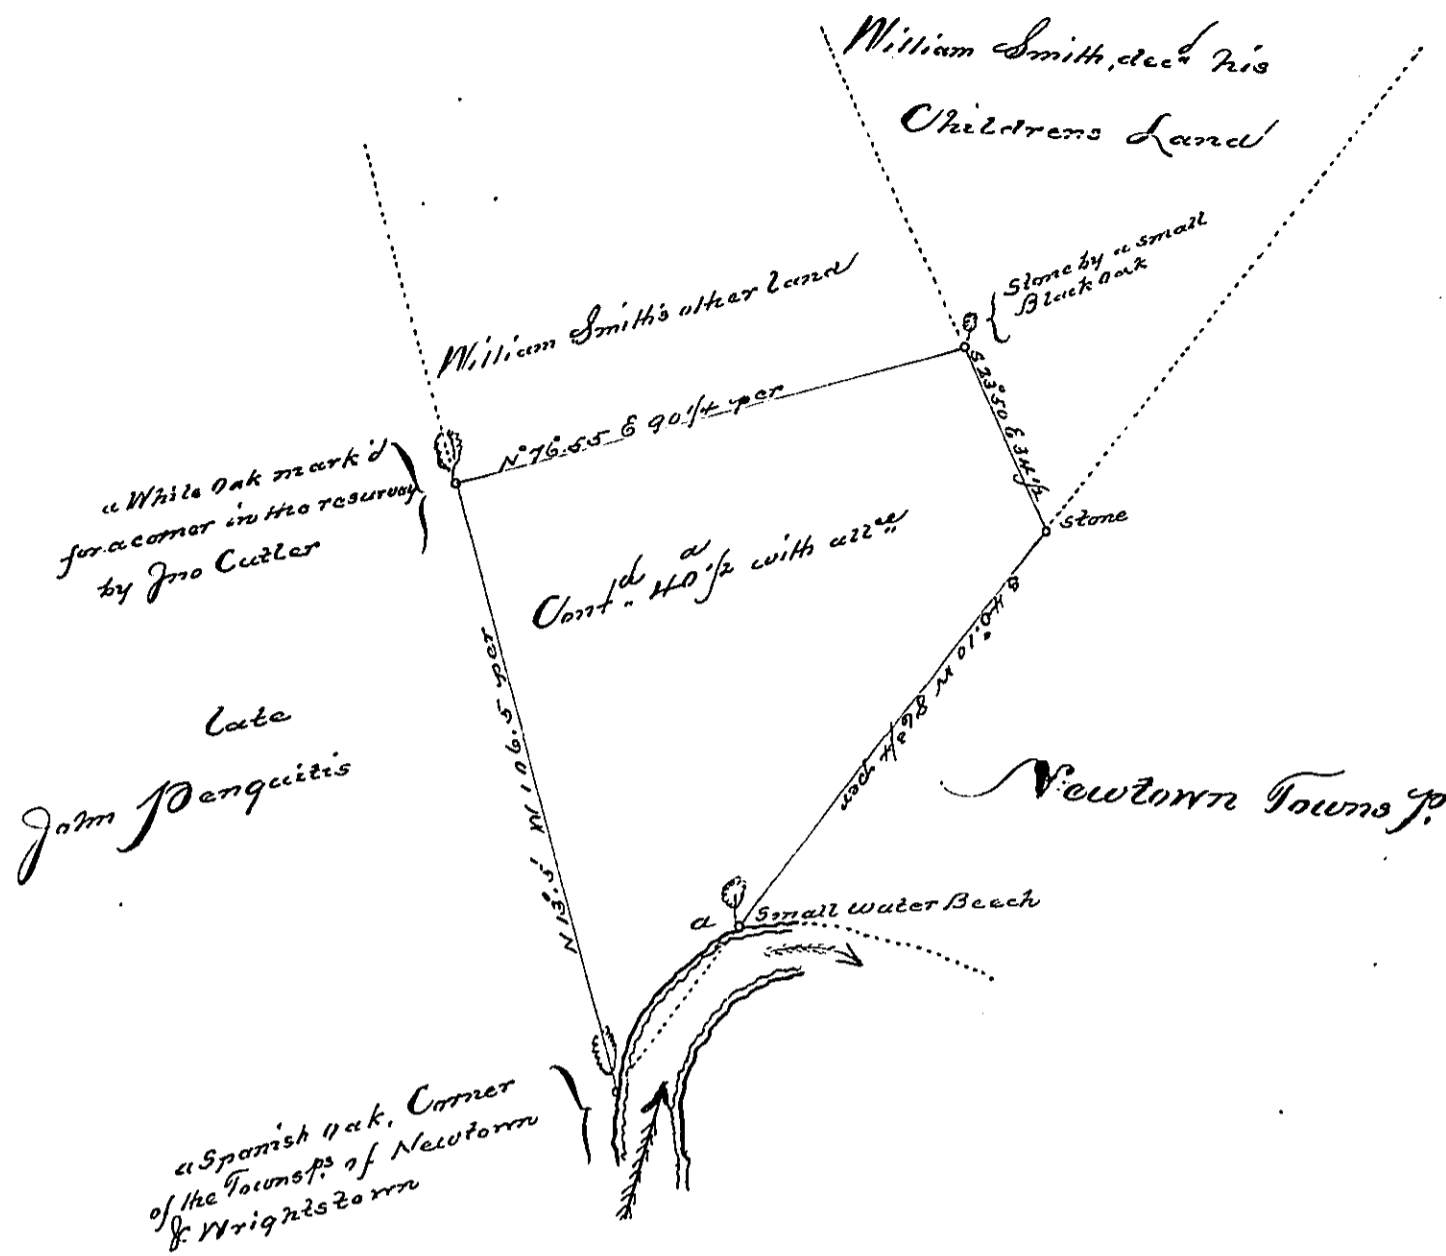 William Smith, dec.d his
Childrens Land
Stone by a small
Black Oak
William Smith's other land
N° 76.55 E 90 1/4 per
S 23° 50 E 34 1/2
a White Oak mark'd
for a corner in the resurvay
by Jno Cutler
Stone
Cont.d 40 a 1/2 with all.ce
S 40.°10 W 86 3/4 per
N 13°.5' W 106.5 per
Late
John Penquitis
Newtown Townsp.
a
Small water Beech
a Spanish Oak, Corner
of the Townsps. of Newtown
& Wrightstown